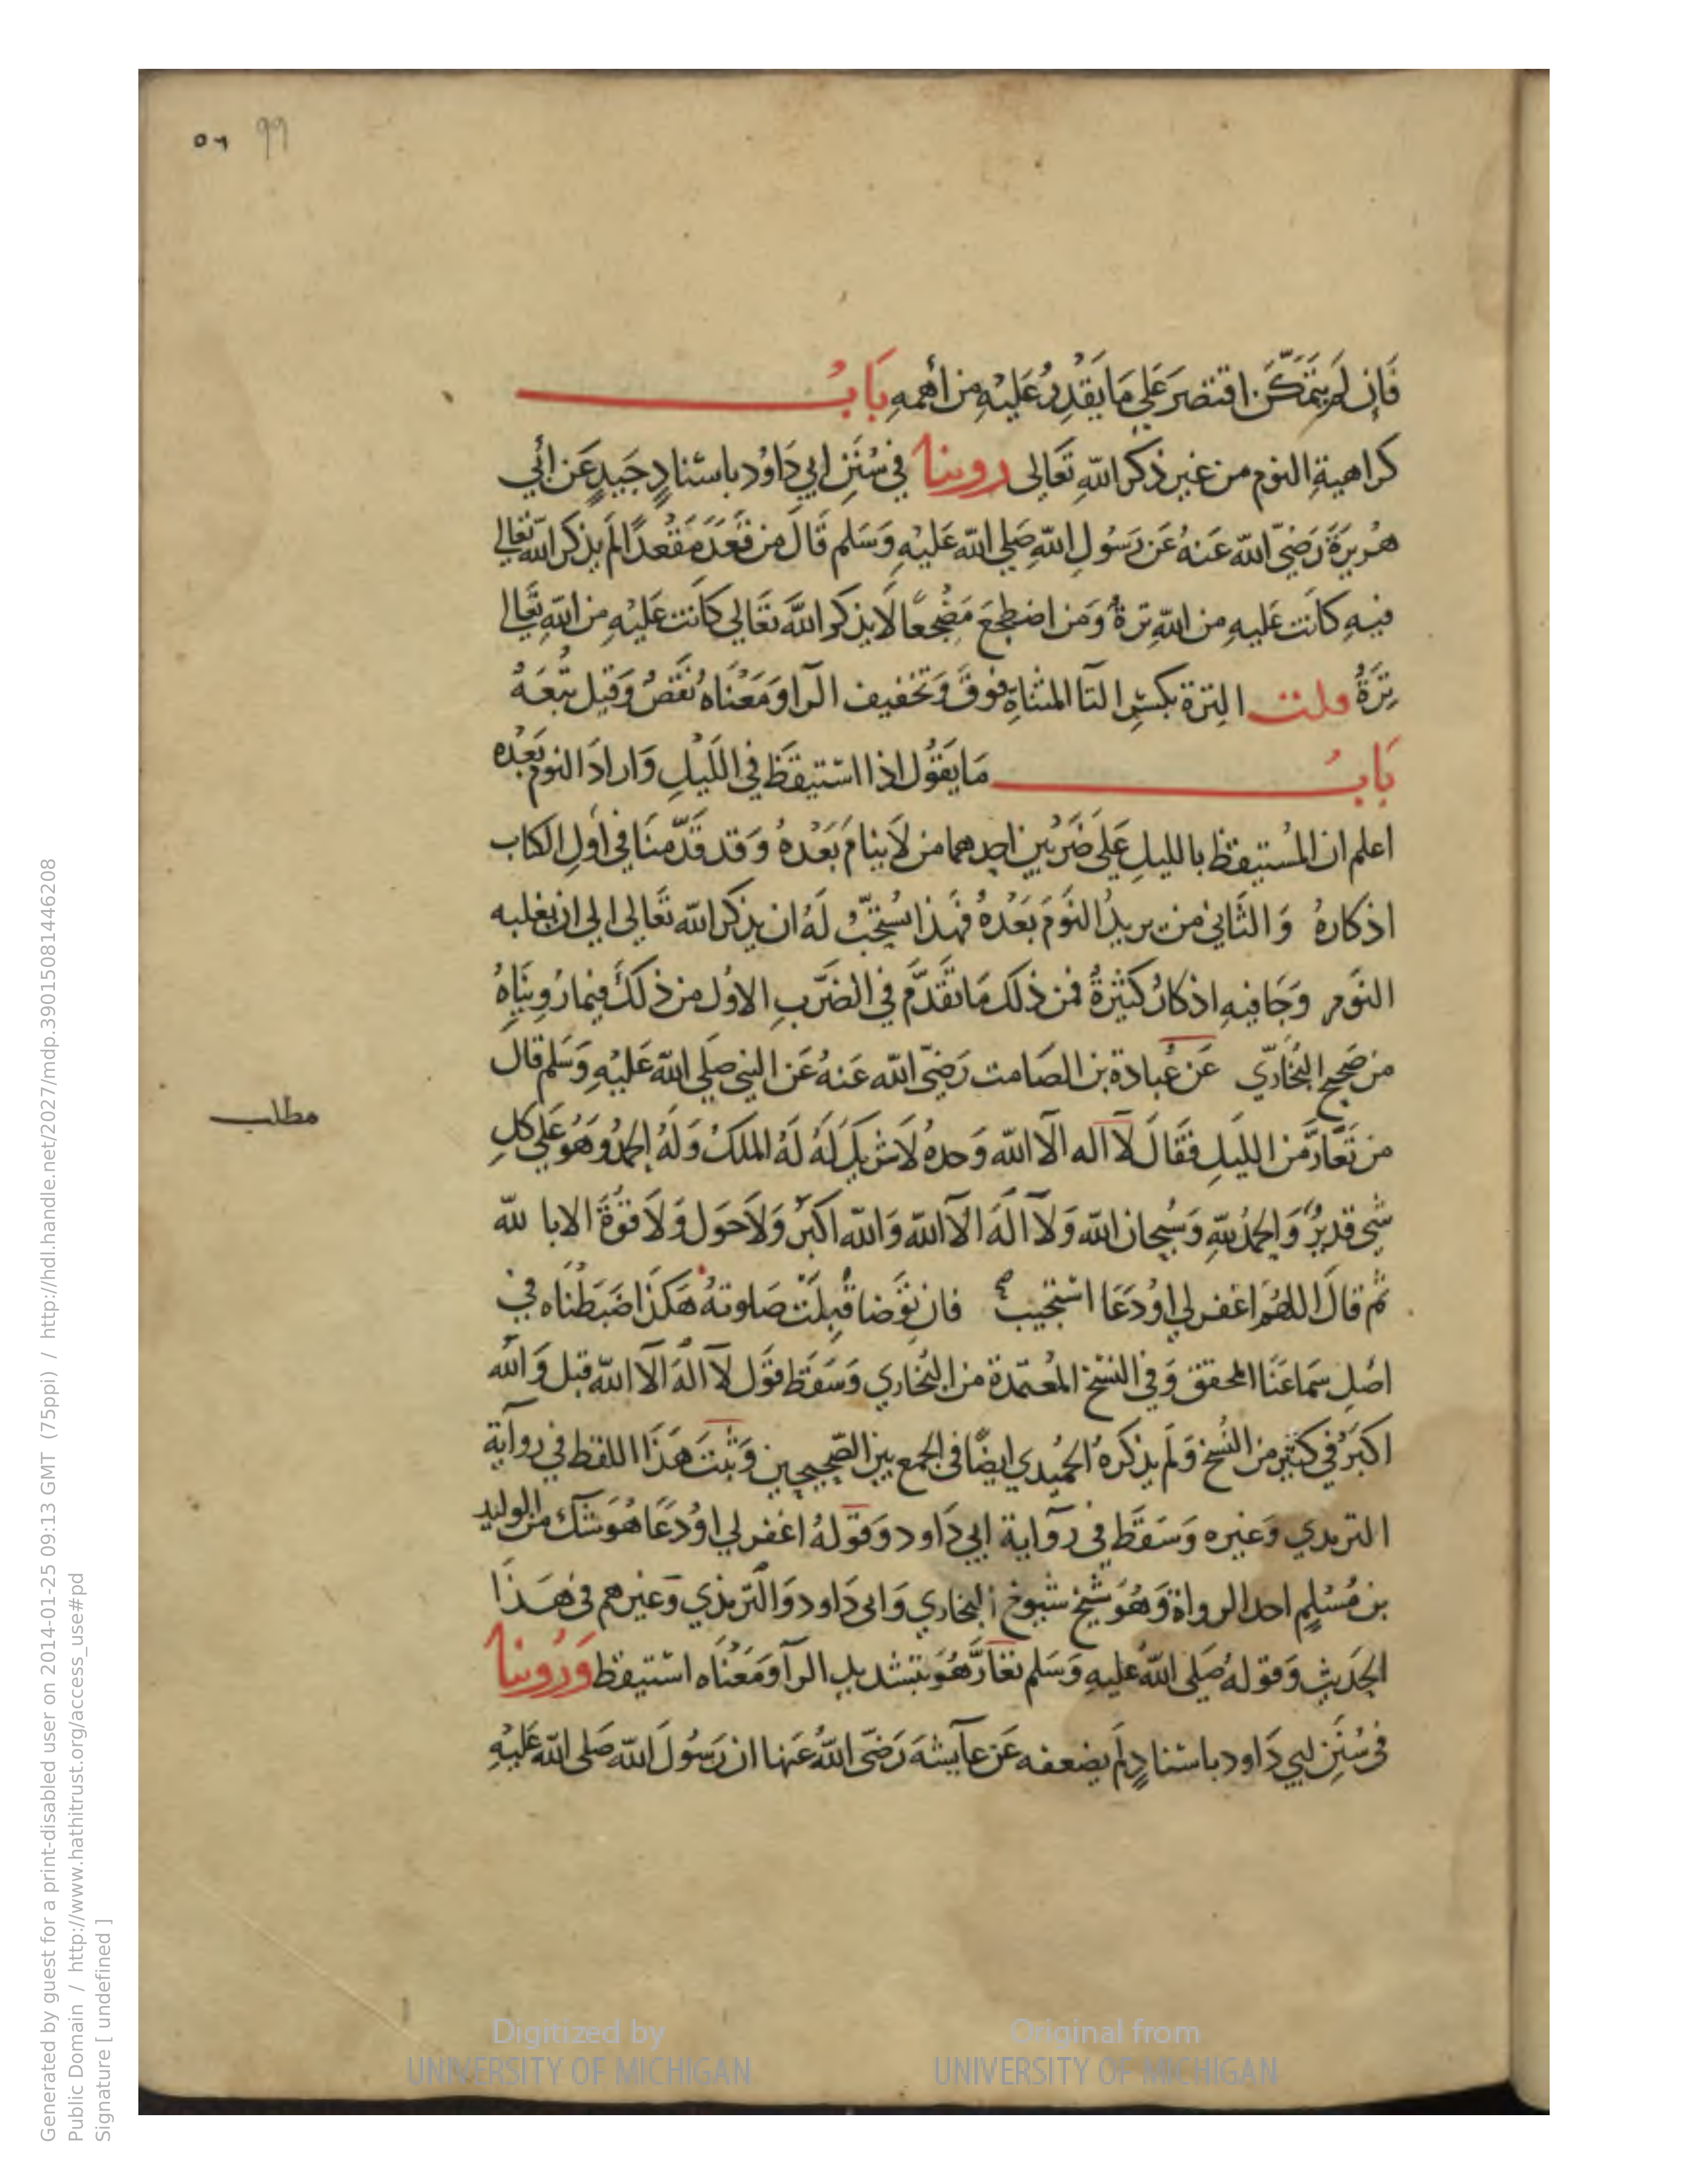 99 ٥٦
فَإِن لَم يَتَمَكَّن اقتصَرَ عَلي مَا يَقدِرُ عَليْهِ من أهمهِ بَابُ
كراهيةِ النوم من غير ذكر اللّهِ تَعَالى روينا في سُنَنِ ابي دَاوُد باسْنادٍ جَيدٍ عَن أَبي
هُريرَةَ رَضيَ اللّه عَنهُ عَن رَسُولِ اللّهِ صَلي اللّه عَليْهِ وَسَلم قَالَ من قَعَدَ مَقْعدًا لَم يذكر اللّه تعَالي
فيهِ كانَت عَليهِ من اللّهِ ترةٌ وَمَن اضطجعَ مَضْجعًا لَا يذكر اللَّه تعَالي كانَت عَليْهِ من اللّهِ تعَالي
تِرَةٌ قلت التِرة بكسْرِ التآ المثناةِ فوقَ وَتخفيف الرآ وَمَعْنَاهُ نَقصٌ وَقيل تَبعَةٌ
بَابُ مَا يقوُل اذا اسْتيقظَ في اللَيْلِ وَارادَ النومَ بَعْدهُ
اعلم ان المُسْتيقظ بالليلِ عَلي ضَرْبين احدهما من لاَ ينامُ بَعْدهُ وَقد قَدّمنَا في اَولِ الكتاب
اذكارهُ وَالثَاني من يريدُ النَومَ بَعْدهُ فهَذا يُسْتحَبّ لَهُ ان يذكر اللّه تَعَالي الي ان يغلبه
النَوم وَجَا فيهِ اذكارٌ كثيْرةٌ فمن ذلك مَا تقَدَّم في الضَرْبِ الاوَل من ذلكَ فيما رُوينَاهُ
من صَحيح البُخَاريّ عَن عُبادة بن الصَامت رَضيَ اللّه عَنهُ عَن النبي صَلي اللّه عَليْهِ وَسَلم قال
مطلب
من تَعَارَّ منَ الليَلِ فقَالَ لآ اله الآ اللّه وَحدهُ لاَ شريكَ لَهُ لَهُ الملكُ وَلَهُ الحمدُ وَهُوَ عَلي كلِ
شي قديرٌ وَالحمدُ للّهِ وَسُبحان اللّه وَلآ الهَ الآ اللّه وَاللّه اكبَرُ وَلاَ حَول وَلاَ قوُةَ الا با للّه
ثم قالَ اللهُم اغفر لي اوْ دَعَا اسْتجيب فان توَضا قُبلَتْ صَلوتهُ هَكذَا ضَبَطْنَاه في
اصْلِ سَماعنَا المحقق وَفي النسَخ المُعتَمدة من البُخاري وَسَقَط قوَل لآ الهَ الآ اللّه قبل وَاللّه
اكبَرُ في كثيْرٍ من النُسخ وَلَم يذكرهُ الحُميدي ايضًا في الجمع بين الصَحيحين وَثبتَ هَذَا اللفظ في روآية
الترمدي وَغيره وَسَقَط في روآية ابي دَاود وَقوَلهُ اغفر لي اوْ دَعَا هُوَ شك من الوليد
بن مُسْلِم احد الرواة وَهُوَ شيخ شيوخ البخاري وَابي دَاود وَالترمذي وَغيرهم في هَذَا
الحَديثِ وَقولهُ صَلي اللّهُ عَليهِ وَسَلم تعَارَّ هُوَ بتشديدِ الرآ وَمَعْنَاه اسْتيقظ وَرُوينا
في سُنَنِ ابي دَاود باسْنادٍ لَم يضعفه عَن عآيشَة رَضيَ اللّهُ عَنها ان رَسُولَ اللّه صَلي اللّه عَليْهِ
Digitized by UNIVERSITY OF MICHIGAN
Original from UNIVERSITY OF MICHIGAN
Generated by guest for a print-disabled user on 2014-01-25 09:13 GMT (75ppi) / http://hdl.handle.net/2027/mdp.39015081446208
Public Domain / http://www.hathitrust.org/access_use#pd
Signature [ undefined ]